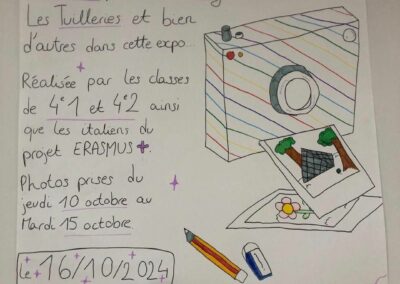 Les Tuilleries et bien
d'autres dans cette expo...
Réalisée par les classes
de 4e1 et 4e2 ainsi
que les italiens du
projet ERASMUS+.
Photos prises du
jeudi 10 octobre au
Mardi 15 octobre
Le 16/10/2024